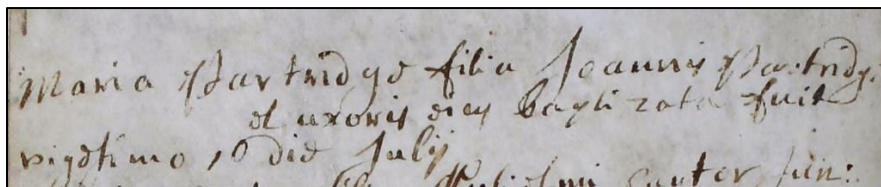 Maria Partridge filia Joannis Partridge
et uxoris eius baptizata fuit
vigesimo die Julij
Gulielmi Carter Jun: